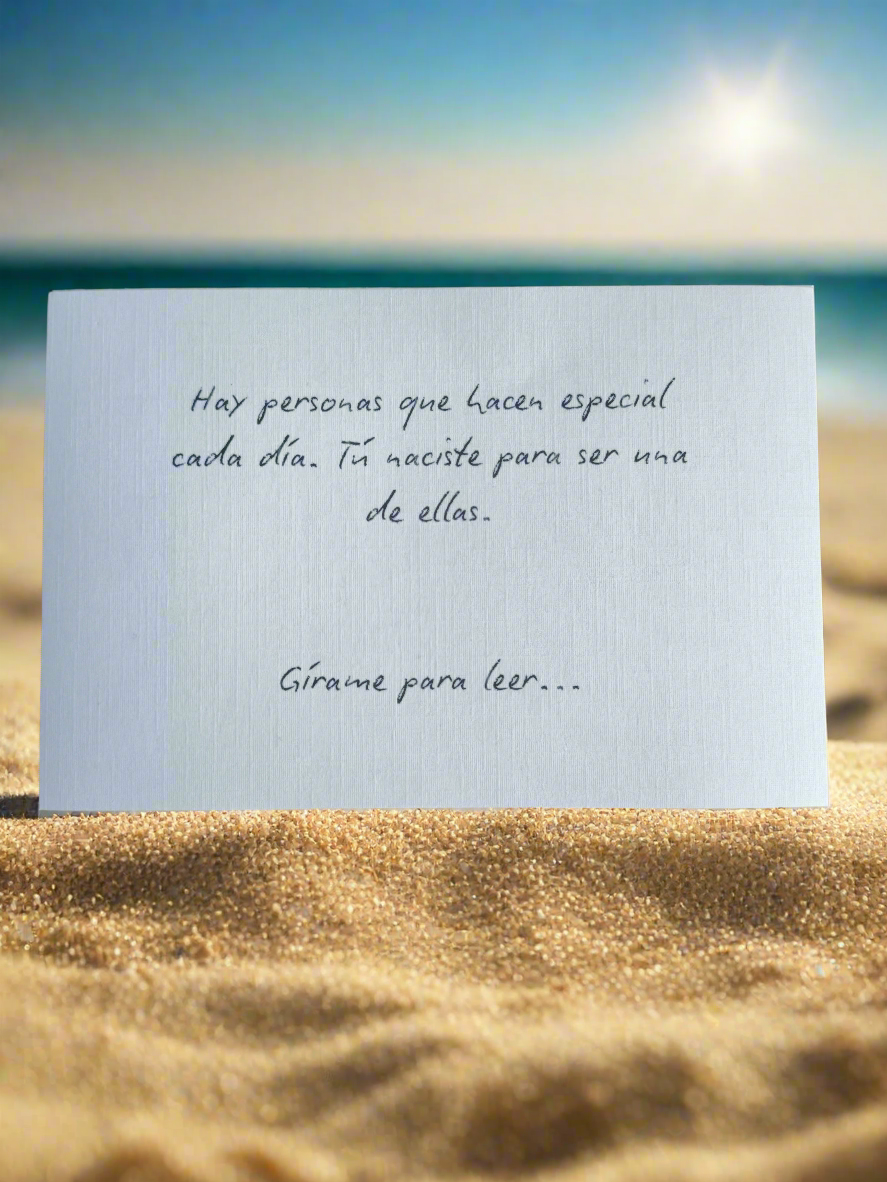 Hay personas que hacen especial
cada día. Tú naciste para ser una
de ellas.
Gírame para leer...